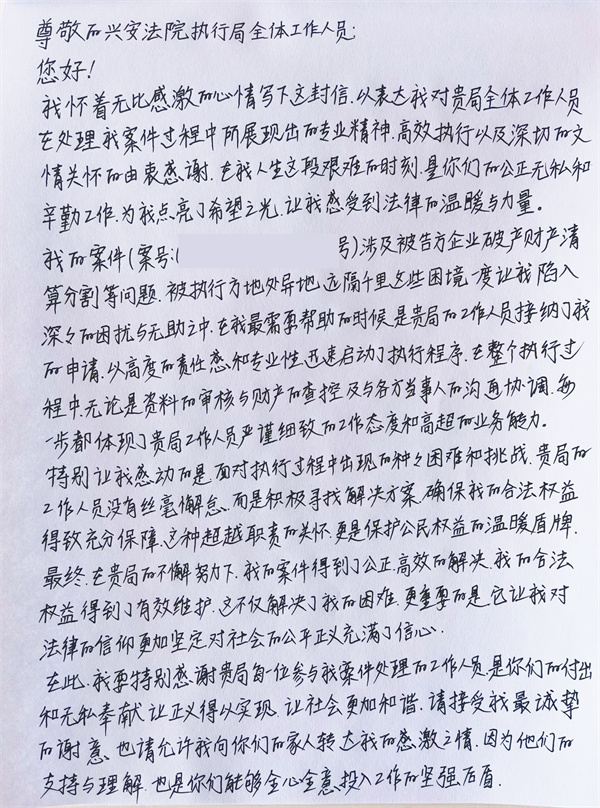 尊敬的兴安法院执行局全体工作人员:
您好!
我怀着无比感激的心情写下这封信.以表达我对贵局全体工作人员
在处理我案件过程中所展现出的专业精神.高效执行以及深切的文
情关怀的由衷感谢.在我人生这段艰难的时刻.是你们的公正无私和
辛勤工作.为我点亮了希望之光.让我感受到法律的温暖与力量。
我的案件(案号:( 号)涉及被告方企业破产财产清
算分割等问题.被执行方地处异地.远隔千里这些困境一度让我陷入
深々的困扰与无助之中.在我最需要帮助的时候.是贵局的工作人员接纳了我
的申请.以高度的责任感和专业性.迅速启动了执行程序.在整个执行过
程中.无论是资料的审核与财产的查控及与各方当事人的沟通协调.每
一步都体现了贵局工作人员严谨细致的工作态度和高超的业务能力.
特别让我感动的是.面对执行过程中出现的种々困难和挑战.贵局的
工作人员没有丝毫懈怠.而是积极寻找解决方案.确保我的合法权益
得致充分保障.这种超越职责的关怀.更是保护公民权益的温暖盾牌.
最终.在贵局的不懈努力下.我的案件得到了公正.高效的解决.我的合法
权益得到了有效维护.这不仅解决了我的困难.更重要的是.它让我对
法律的信仰更加坚定.对社会的公平正义充满了信心.
在此.我要特别感谢贵局每一位参与我案件处理的工作人员.是你们的付出
和无私奉献.让正义得以实现.让社会更加和谐.请接受我最诚挚
的谢意.也请允许我向你们的家人转达我的感激之情.因为他们的
支持与理解.也是你们能够全心全意投入工作的坚强后盾.